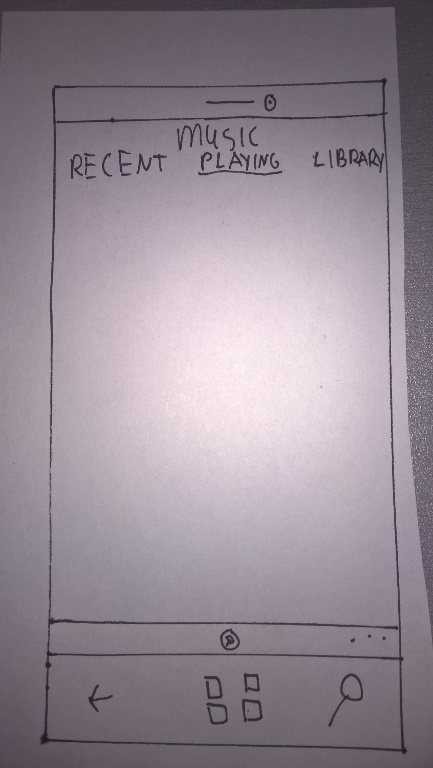 MUSIC
RECENT PLAYING LIBRARY